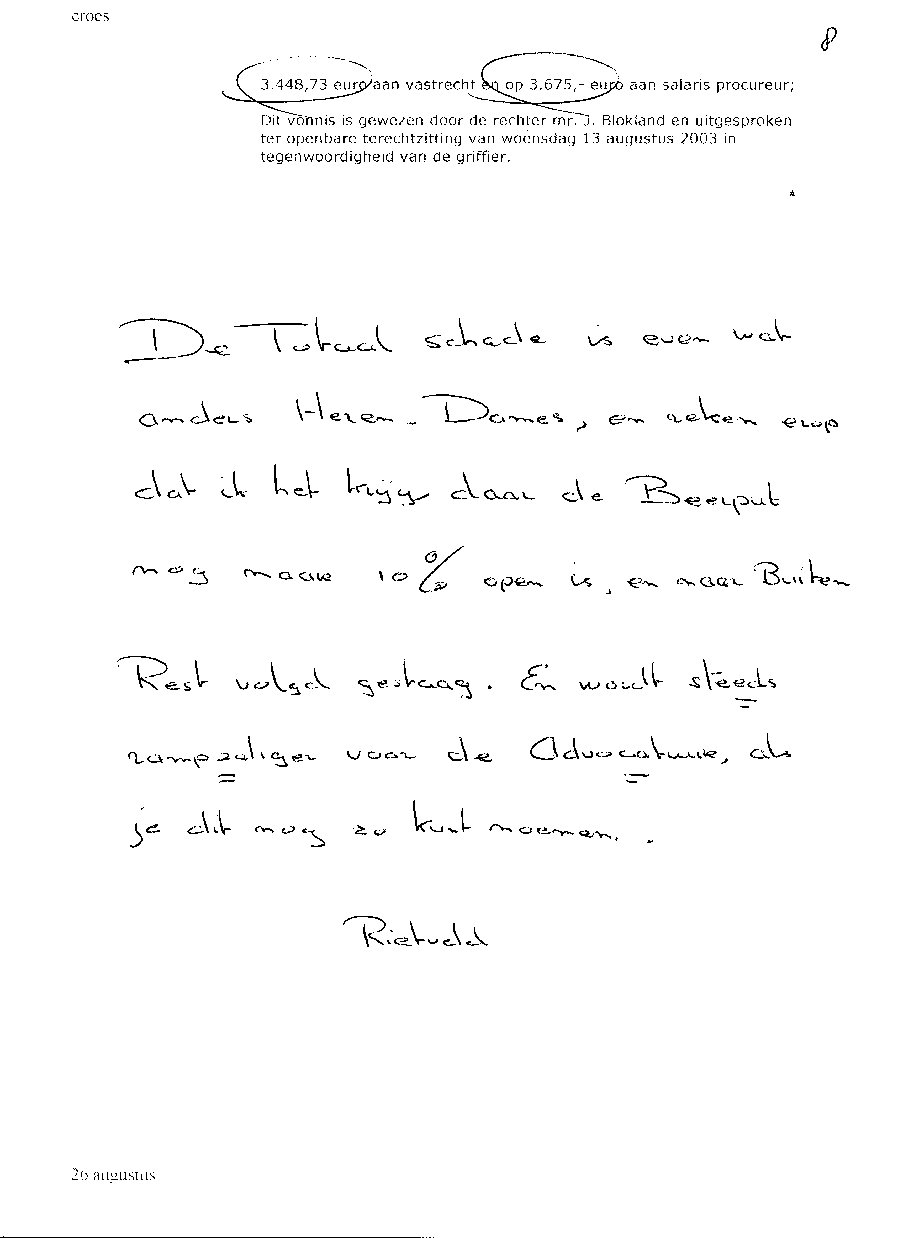 croes
8
3.448,73 euro aan vastrecht en op 3.675,- euro aan salaris procureur;
Dit vonnis is gewezen door de rechter mr. J. Blokland en uitgesproken
ter openbare terechtzitting van woensdag 13 augustus 2003 in
tegenwoordigheid van de griffier.
De Totaal schade is even wat
anders Heren - Dames, en reken erop
dat ik het krijg daar de Beerput
nog maar 10% open is, en naar Buiten
Rest volgd gestaag. En wordt steeds
rampzaliger voor de Advocatuur, als
je dit nog zo kunt noemen.
Rietveld
26 augustus